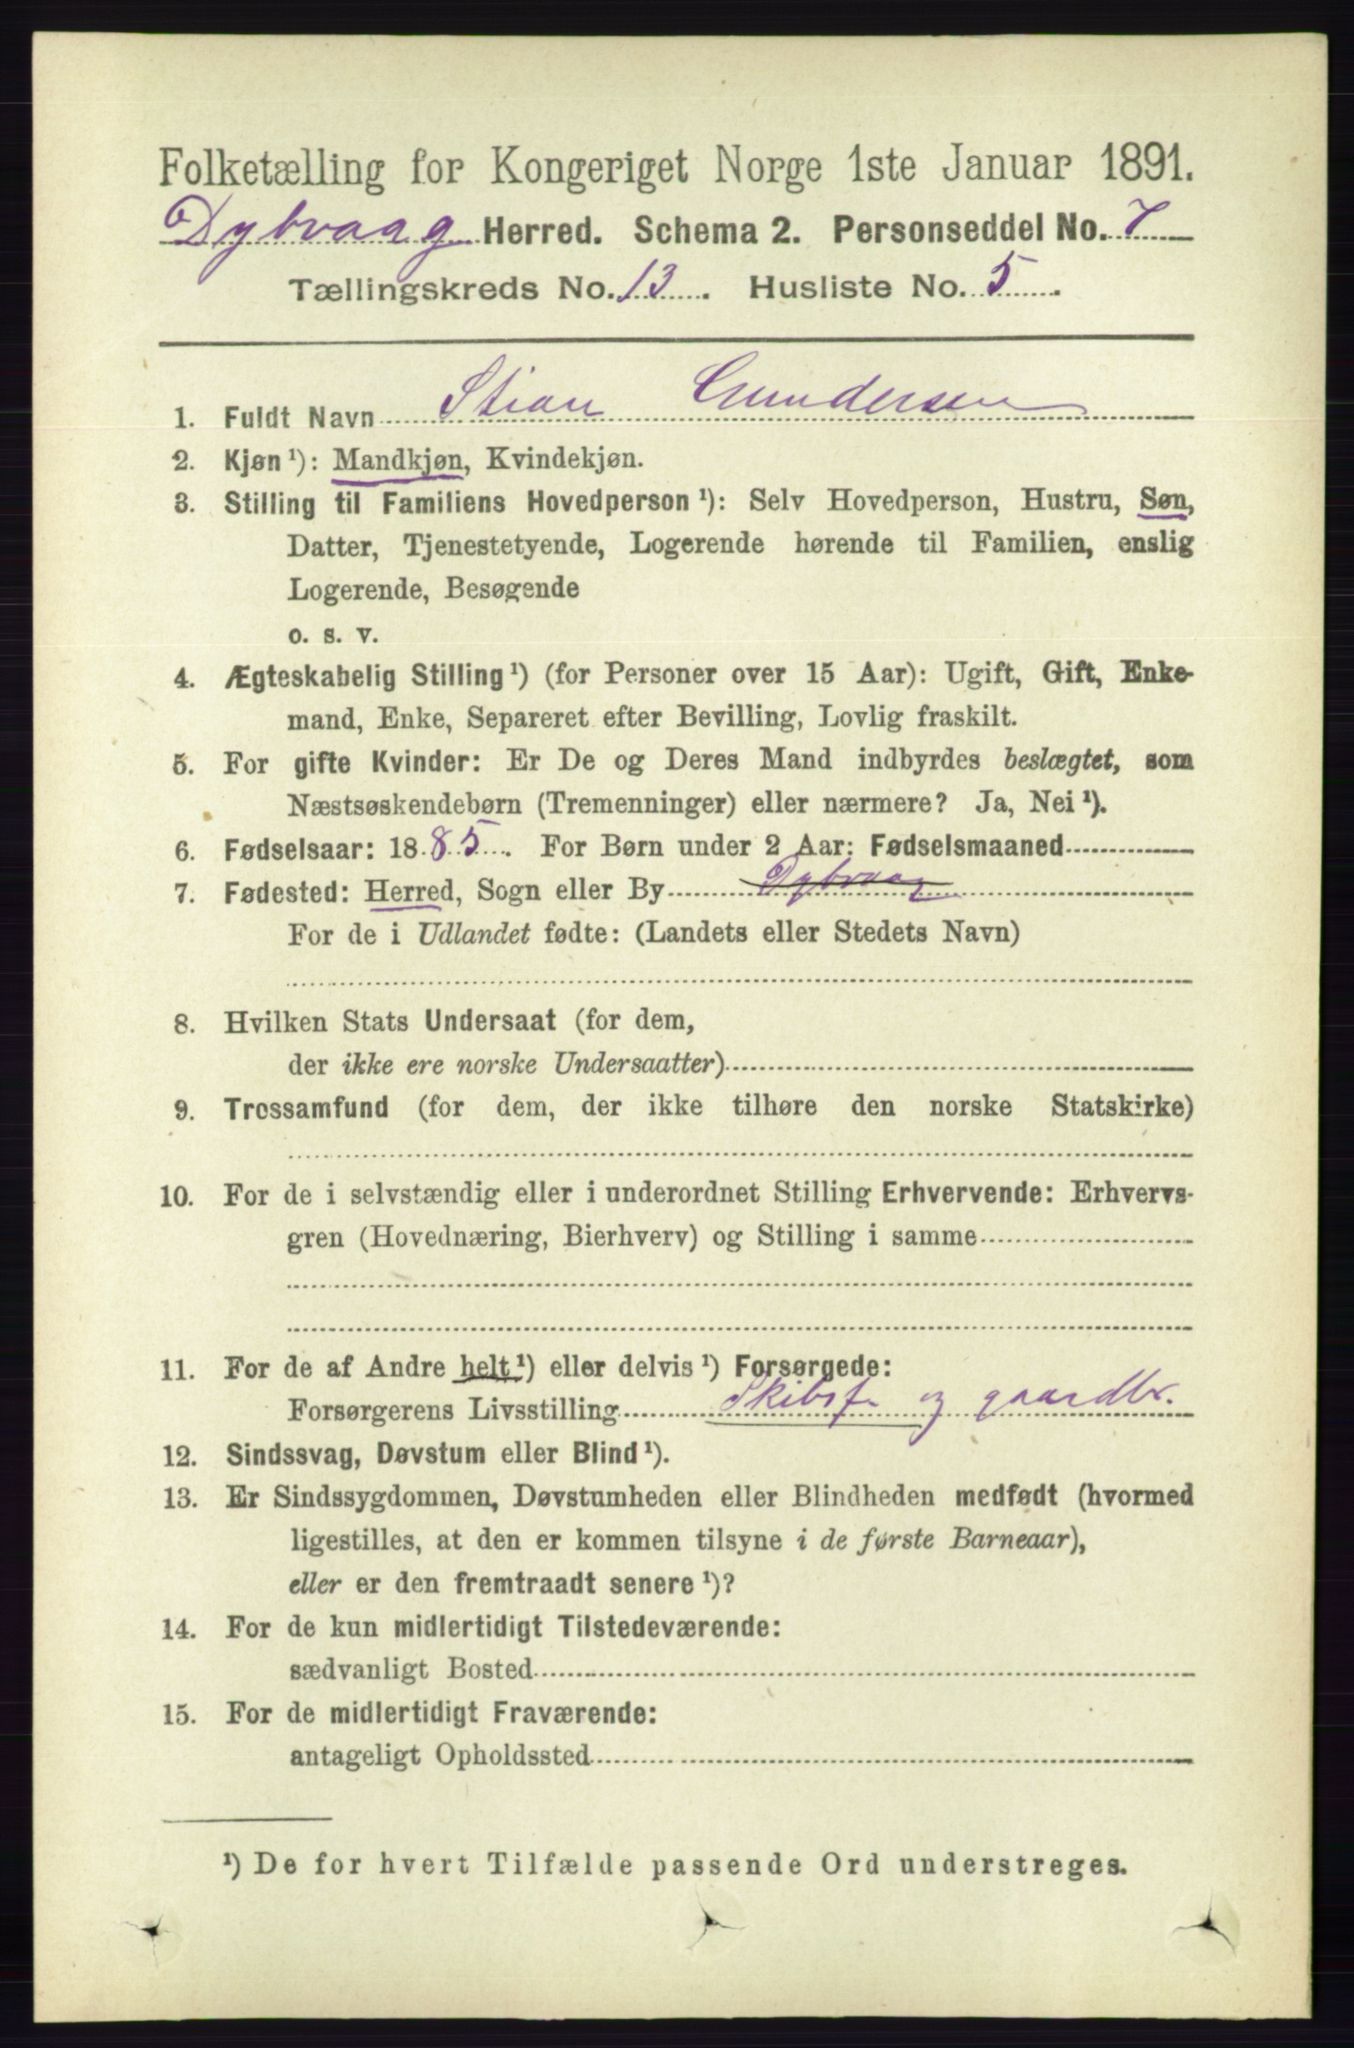 Folketælling for Kongeriget Norge 1ste Januar 1891.
Dybvaag Herred. Schema 2. Personseddel No. 7
Tællingskreds No. 13. Husliste No. 5.
1. Fuldt Navn Stian Gundersen
2. Kjøn¹): Mandkjøn, Kvindekjøn.
3. Stilling til Familiens Hovedperson¹): Selv Hovedperson, Hustru, Søn,
Datter, Tjenestetyende, Logerende hørende til Familien, enslig
Logerende, Besøgende
o. s. v.
4. Ægteskabelig Stilling¹) (for Personer over 15 Aar): Ugift, Gift, Enke-
mand, Enke, Separeret efter Bevilling, Lovlig fraskilt.
5. For gifte Kvinder: Er De og Deres Mand indbyrdes beslægtet, som
Næstsøskendebørn (Tremenninger) eller nærmere? Ja, Nei¹).
6. Fødselsaar: 1885. For Børn under 2 Aar: Fødselsmaaned
7. Fødested: Herred, Sogn eller By Dybvaag
For de i Udlandet fødte: (Landets eller Stedets Navn)
8. Hvilken Stats Undersaat (for dem,
der ikke ere norske Undersaatter)
9. Trossamfund (for dem, der ikke tilhøre den norske Statskirke)
10. For de i selvstændig eller i underordnet Stilling Erhvervende: Erhvervs-
gren (Hovednæring, Bierhverv) og Stilling i samme
11. For de af Andre helt¹) eller delvis¹) Forsørgede:
Forsørgerens Livsstilling Skibsf. og gaardbr.
12. Sindssvag, Døvstum eller Blind¹).
13. Er Sindssygdommen, Døvstumheden eller Blindheden medfødt (hvormed
ligestilles, at den er kommen tilsyne i de første Barneaar),
eller er den fremtraadt senere¹)?
14. For de kun midlertidigt Tilstedeværende:
sædvanligt Bosted
15. For de midlertidigt Fraværende:
antageligt Opholdssted
¹) De for hvert Tilfælde passende Ord understreges.